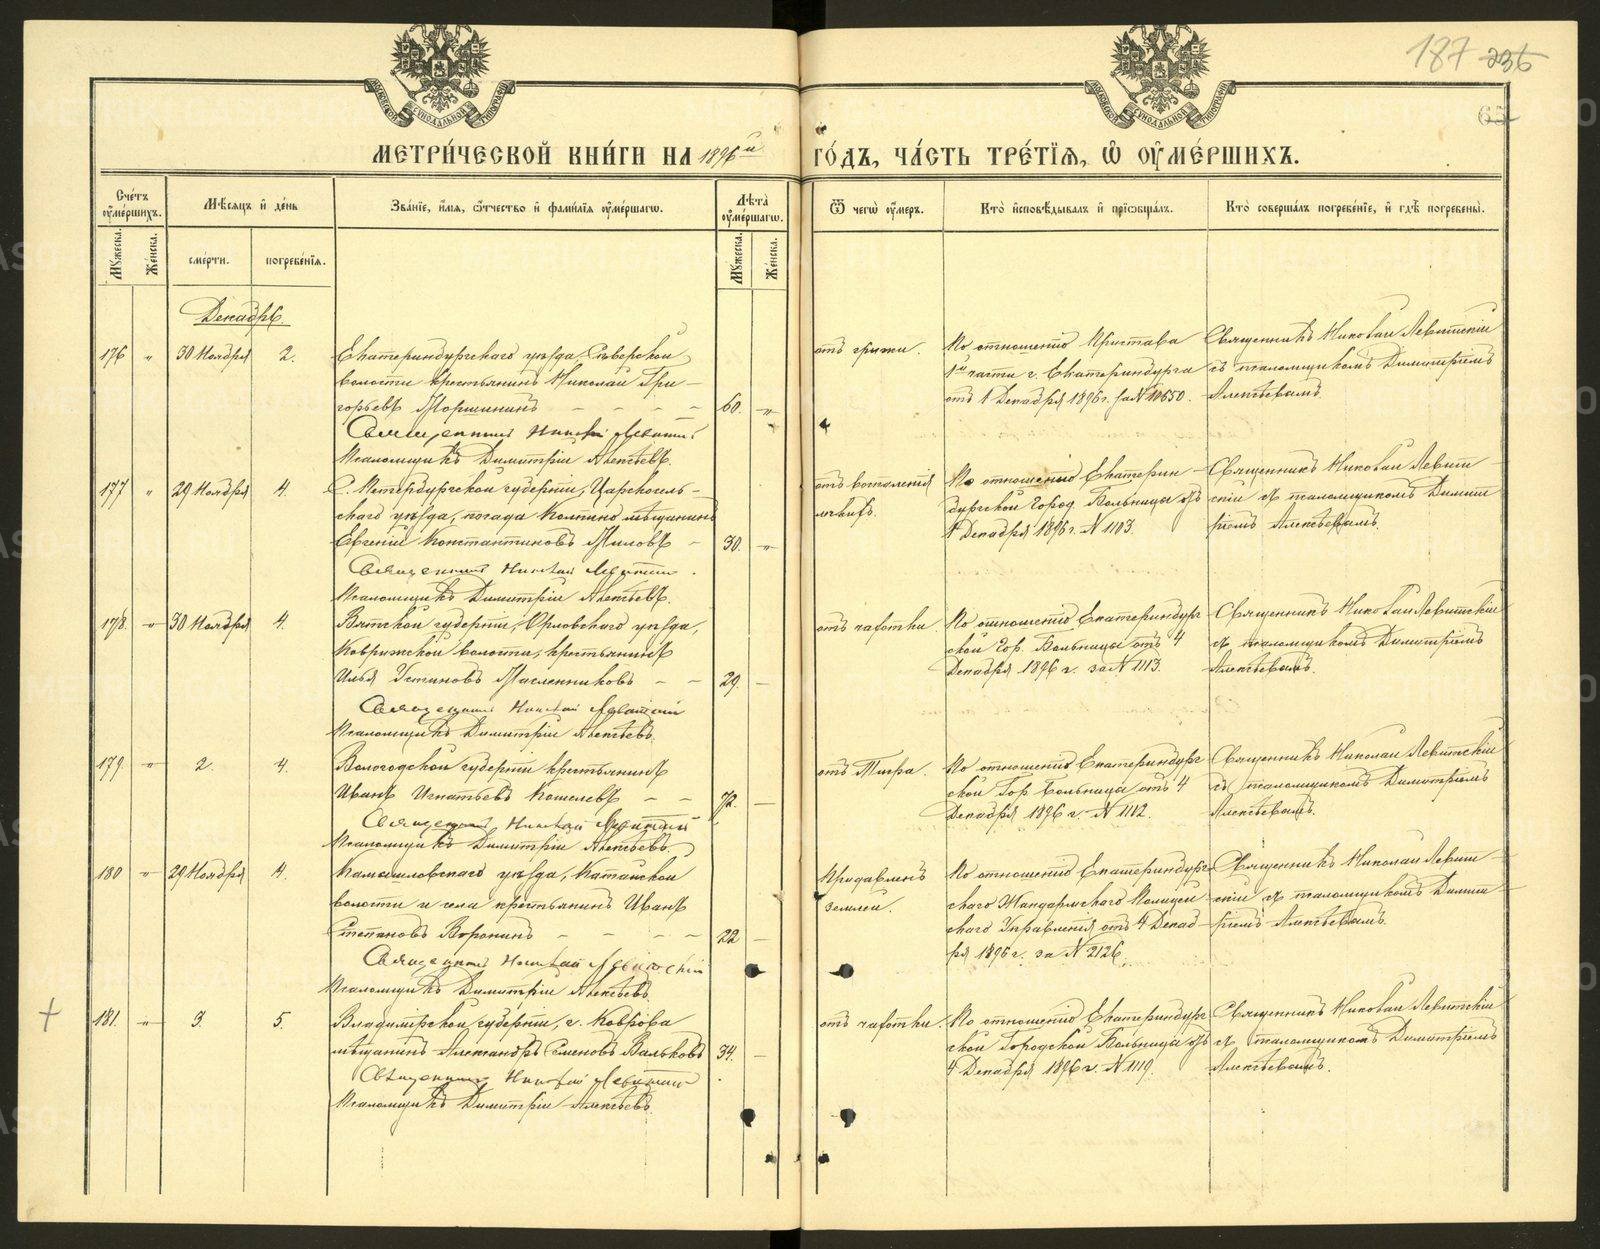 187 236
65
МЕТРИ́ЧЕСКОЙ КНИ́ГИ НА 1896й ГО́ДЪ, ЧА́СТЬ ТРЕ́ТІѦ, Ѡ ОУ҆МЕ́РШИХЪ.
Сче́тъ оу҆ме́ршихъ.
Мѣ́сяцъ и҆ де́нь
Зва́нїе, и҆́мѧ, ѻ҆́тчество и҆ фами́лїѧ оу҆ме́ршагѡ.
Лѣ́та оу҆ме́ршагѡ.
Ѿ чегѡ̀ оу҆́меръ.
Кто̀ и҆сповѣ́дывалъ и҆ прїѡбща́лъ.
Кто̀ соверша́лъ погребе́нїе, и҆ гдѣ̀ погребены̀.
Мꙋ́жеска.
Же́нска.
сме́рти.
погребе́нїѧ.
Мꙋ́жеска.
Же́нска.
Декабрь.
176 " 30 Ноября 2.
Екатеринбургскаго уѣзда, Сѣверской
волости крестьянинъ Николай Гри-
горьевъ Моршининъ - - - - 60. "
Священникъ Николай Левитскій
Псаломщикъ Димитрій Алексѣевъ.
отъ грыжи.
По отношенію Пристава
1й части г. Екатеринбурга
отъ 1 Декабря 1896 г. за № 10650.
Священникъ Николай Левитскій
съ псаломщикомъ Димитріемъ
Алексѣевымъ.
177 " 29 Ноября 4.
С. Петербургской губерніи, Царскосель-
скаго уѣзда, посада Колпино мѣщанинъ
Евгеній Константиновъ Миловъ - 30. "
Священникъ Николай Левитскій
Псаломщикъ Димитрій Алексѣевъ.
отъ воспаленія
легкихъ.
По отношенію Екатерин-
бургской Город. Больницы отъ
4 Декабря 1896 г. № 1103.
Священникъ Николай Левит-
скій съ псаломщикомъ Димит-
ріемъ Алексѣевымъ.
178. " 30 Ноября 4.
Вятской губерніи, Орловскаго уѣзда,
Коврижской волости, крестьянинъ
Илья Устиновъ Масленниковъ - - 29. -
Священникъ Николай Левитскій
Псаломщикъ Димитрій Алексѣевъ.
отъ чахотки.
По отношенію Екатеринбург-
ской Гор. Больницы отъ 4
Декабря 1896 г. за № 1113.
Священникъ Николай Левитскій
съ псаломщикомъ Димитріемъ
Алексѣевымъ.
179. " 2. 4.
Вологодской губерніи крестьянинъ
Иванъ Игнатьевъ Кошелевъ - - 72. -
Священникъ Николай Левитскій
Псаломщикъ Димитрій Алексѣевъ.
отъ Тифа.
По отношенію Екатеринбург-
ской Гор. Больницы отъ 4
Декабря 1896 г. № 1112.
Священникъ Николай Левитскій
съ псаломщикомъ Димитріемъ
Алексѣевымъ.
180 " 29 Ноября 4.
Камышловскаго уѣзда, Катайской
волости и села крестьянинъ Иванъ
Степановъ Воронинъ - - - - 22 -
Священникъ Николай Левитскій
Псаломщикъ Димитрій Алексѣевъ.
Придавленъ
землей.
По отношенію Екатеринбург-
скаго Жандармскаго Полицей-
скаго Управленія отъ 4 Декаб-
ря 1896 г. за № 2126.
Священникъ Николай Левит-
скій съ псаломщикомъ Димит-
ріемъ Алексѣевымъ.
+ 181. " 3. 5.
Владимірской губерніи, г. Коврова
мѣщанинъ Александръ Семеновъ Вальковъ 34. -
Священникъ Николай Левитскій
Псаломщикъ Димитрій Алексѣевъ.
отъ чахотки.
По отношенію Екатеринбург-
ской Городской Больницы отъ
4 Декабря 1896 г. № 1119.
Священникъ Николай Левитскій
съ псаломщикомъ Димитріемъ
Алексѣевымъ.